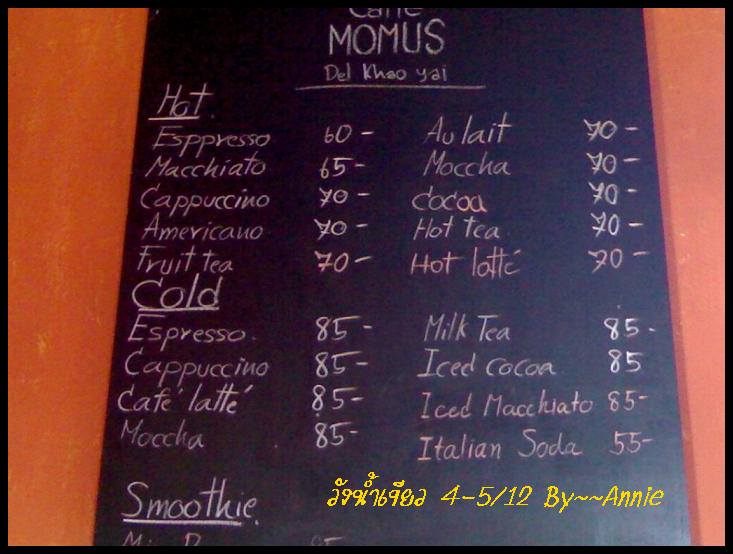 Caffe
MOMUS
Del Khao yai
Hot
Esppresso 60- Au lait 70-
Macchiato 65- Moccha 70-
Cappuccino 70- Cocoa 70-
Americano 70- Hot tea 70-
Fruit tea 70- Hot latté 70-
Cold
Espresso. 85- Milk Tea 85-
Cappuccino 85- Iced cocoa 85
Café latté 85- Iced Macchiato 85-
Moccha 85- Italian Soda 55-
Smoothie.
วังน้ำเขียว 4-5/12 By~~Annie